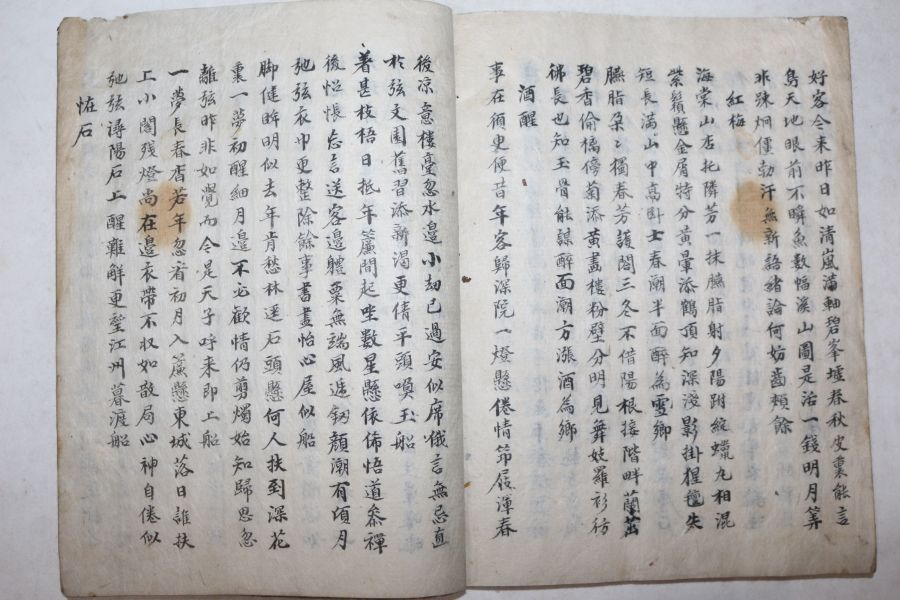 好客今来昨日如清嵐滿軸碧峯墟春秋皮裏能言
鳥天地眼前不瞬魚數幅溪山圖是活一錢明月筭
非疎炯僮勃汗無新語緒論何妨齒頰餘
紅梅
海棠山杏托隣芳一抹臙脂射夕陽跗綻蠟丸相混
紫鬚懸金屑特分黄暈添鶴頂知深淺影掛猩氊失
短長滿山中高卧士春潮半面醉為雪鄕
臙脂朶々獨春芳護閤三冬不借陽根接階畔蘭茁
碧香偷橘傍菊添黄畵樓粉壁分明見舞妓羅衫彷
彿長也知玉骨能謀醉面潮方漲酒為鄕
酒醒
事在須臾便昔年客歸深院一燈懸倦情節屐渾春
後凉意樓臺忽水邊小劫已過安似席俄言無忌直
於弦文園舊習添新渴更倩平頭喚玉船
着甚枝梧日抵年簾間起坐數星懸依佈悟道叅禪
後怊悵忘言送客邊軆粟無端風造釼顔潮有頃月
弛弦衣巾更整除餘事書畫怡心屋似船
脚健眸明似去年肯愁林逕石頭懸何人扶到深花
裏一夢初醒細月邊不必歡情仍剪燭始知歸思忽
離弦昨非如覺而今是天子呼来即上船
一夢長春杏若年忽看初月入簾懸東城落日誰扶
上小閣殘燈尚在邊衣帶不収如散局心神自倦似
弛弦潯陽石上醒難解更望江州暮渡船
恠石